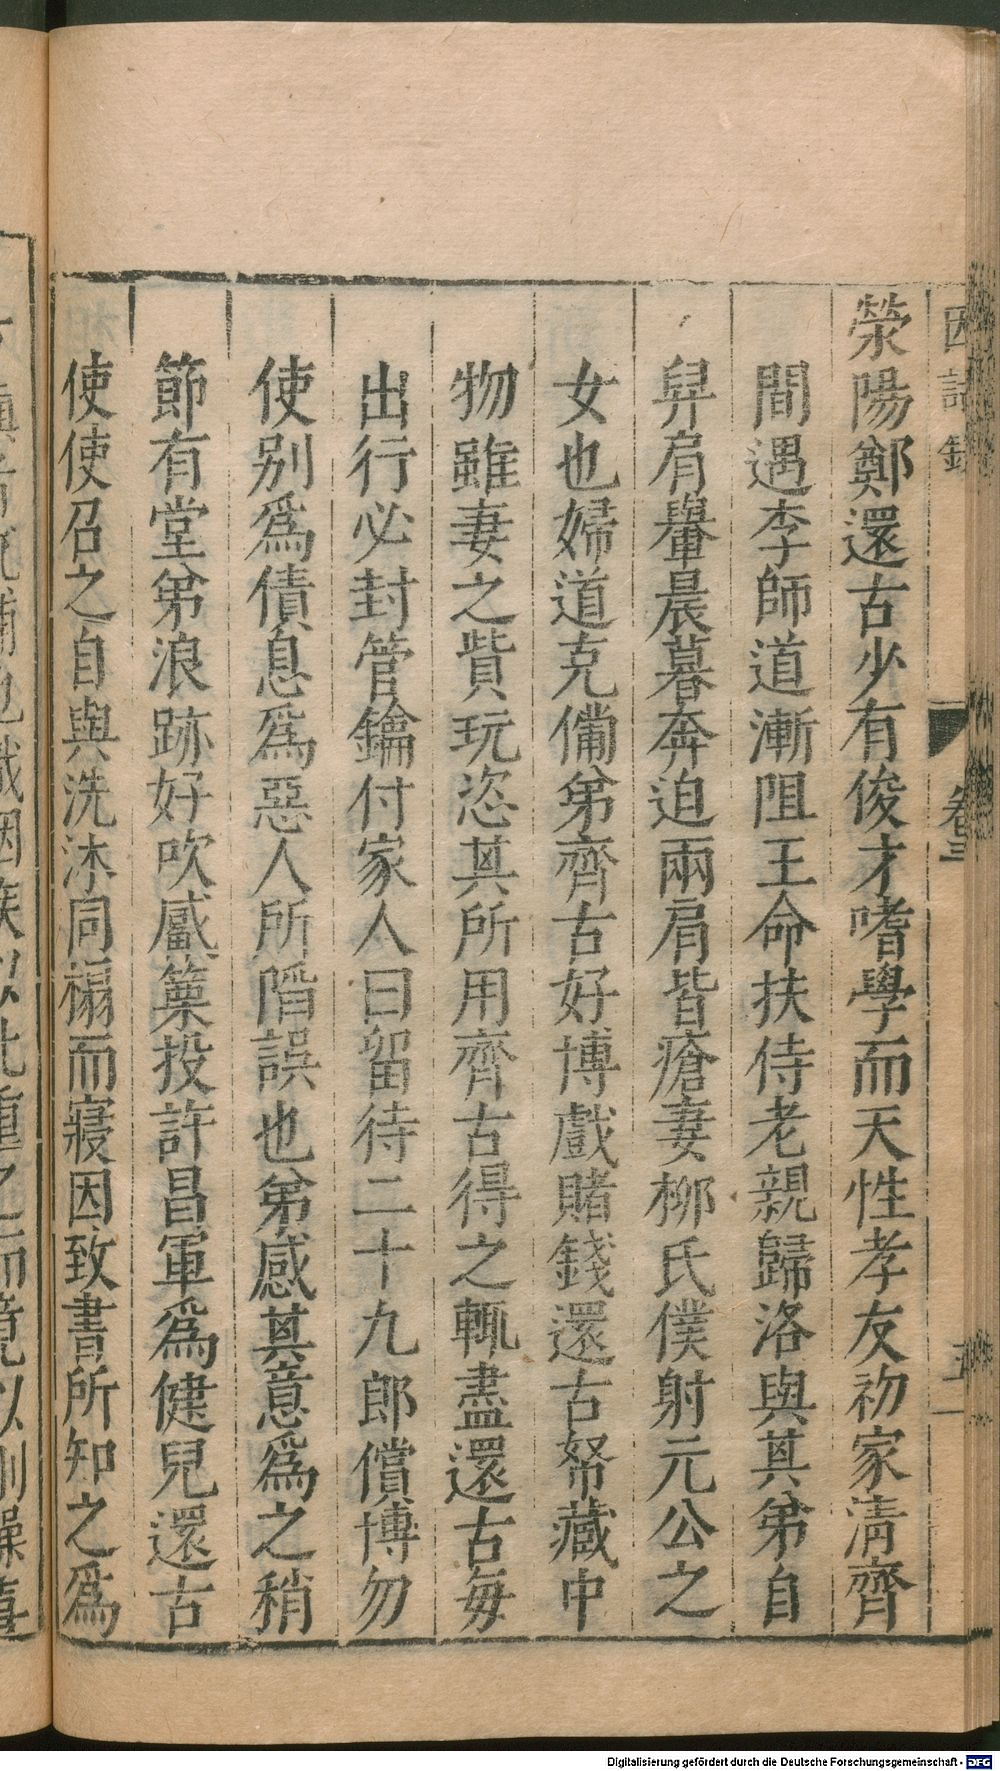 因話錄
卷三
滎陽鄭還古少有俊才嗜學而天性孝友初家淸齊
間遇李師道漸阻王命扶侍老親歸洛與其弟自
舁肩轝晨暮奔迫兩肩皆瘡妻柳氏僕射元公之
女也婦道克備弟齊古好博戲賭錢還古帑藏中
物雖妻之貲玩恣其所用齊古得之輒盡還古每
出行必封管鑰付家人曰留待二十九郎償博勿
使别爲債息爲惡人所陷誤也弟感其意爲之稍
節有堂弟浪跡好吹觱篥投許昌軍爲健兒還古
使使召之自與洗沐同榻而寢因致書所知之爲
Digitalisierung gefördert durch die Deutsche Forschungsgemeinschaft - DFG